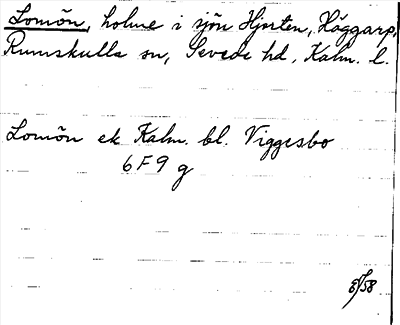 Lomön, holme i sjön Hjorten, Häggarp,
Rumskulla sn, Sevede hd, Kalm. l.
Lomön ek Kalm. bl. Viggesbo
6F9 g